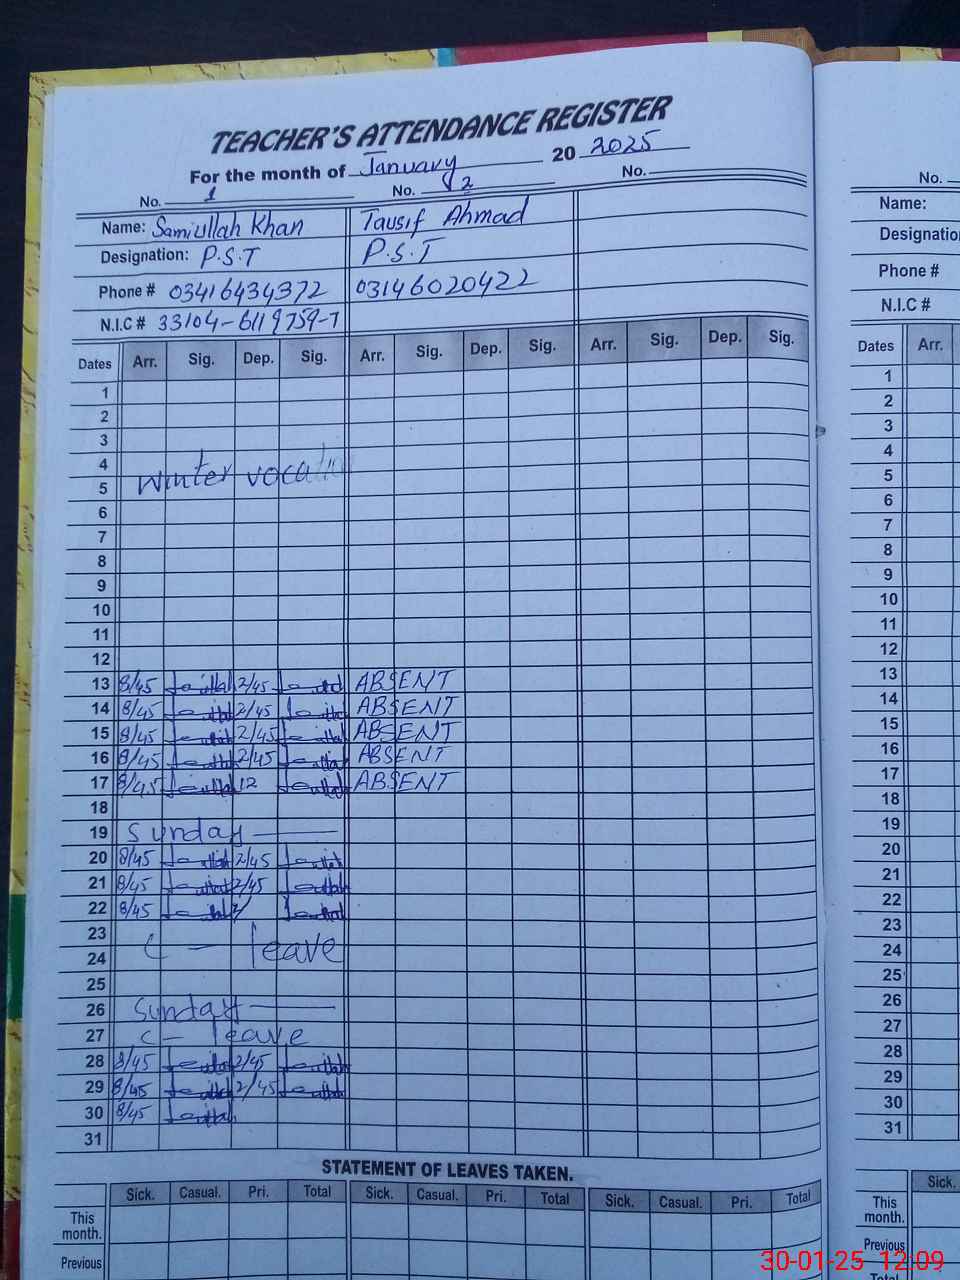 TEACHER'S ATTENDANCE REGISTER
For the month of January 20 2025
No. 1 No. 2 No.
Name: Samiullah Khan Tausif Ahmad
Designation: P.S.T P.S.T
Phone # 03416434372 03146020422
N.I.C # 33104-6119759-7
Dates Arr. Sig. Dep. Sig. Arr. Sig. Dep. Sig. Arr. Sig. Dep. Sig.
1
2
3
4
winter vocatio
5
6
7
8
9
10
11
12
13 8/45 2/45 ABSENT
14 8/45 2/45 ABSENT
15 8/45 2/45 ABSENT
16 8/45 2/45 ABSENT
17 8/45 12 ABSENT
18
19 Sunday
20 8/45 2/45
21 8/45 2/45
22 8/45 2/
23
C - leave
24
25
26 Sunday
27 C - leave
28 8/45 2/45
29 8/45 2/45
30 8/45
31
STATEMENT OF LEAVES TAKEN.
Sick. Casual. Pri. Total Sick. Casual. Pri. Total Sick. Casual. Pri. Total
This month.
Previous
No.
Name:
Designatio
Phone #
N.I.C #
Dates Arr.
1
2
3
4
5
6
7
8
9
10
11
12
13
14
15
16
17
18
19
20
21
22
23
24
25
26
27
28
29
30
31
Sick.
This month.
Previous
Total
30-01-25 12:09